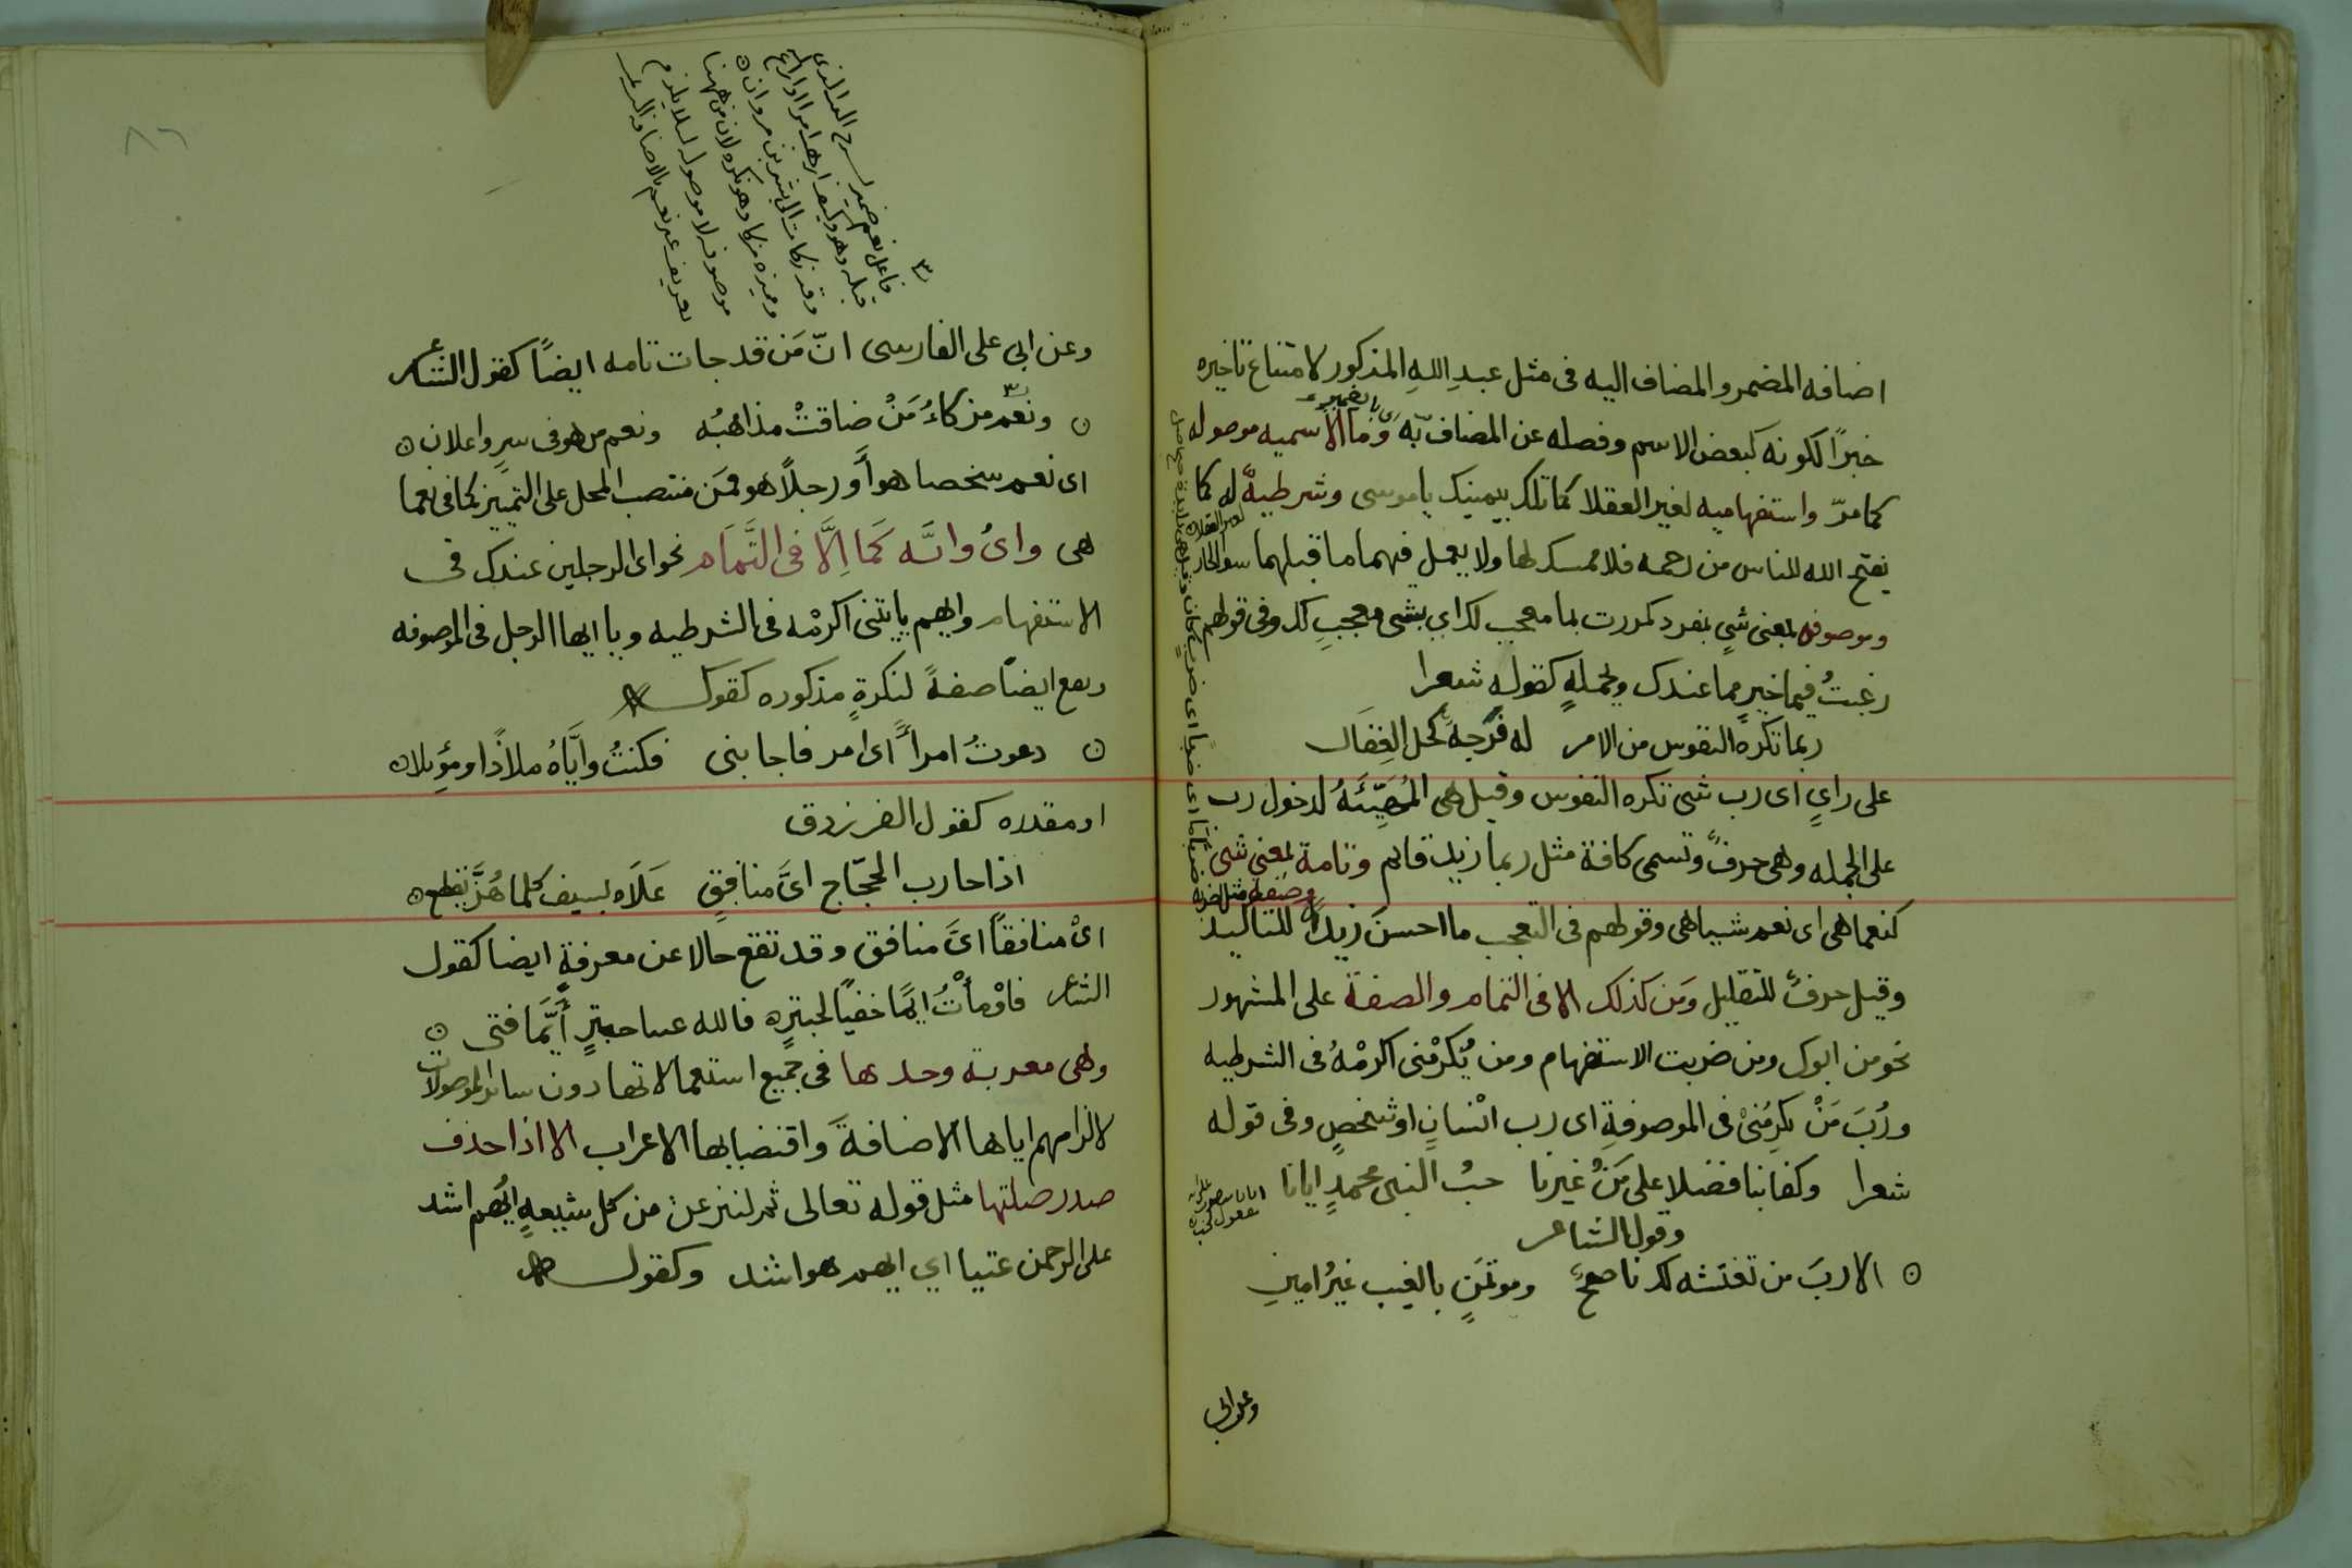 اضافه المضمر والمضاف اليه فى مثل عبدِ اللهِ المذكور لامتناع تاخيره
خبرًا لكونه كبعض الاسم وفصله عن المضاف به وَما الاسميه موصوله
كما مرّ واستفهاميه لغير العقلا كما تلك بيمينك ياموسى وشرطيةً له كما
يفتح الله للناس من رحمه فلا ممسك لها ولا يعمل فيهما ما قبلهما سوا الجار
وموصوفه بمعنى شىٍ بمفرد كمررت بما معجب لك اي بشى معجبِ لك وفى قولهم
رغبتُ فيما خيرٍ مما عندك وبجملهٍ كقوله شعرا
ربما تكرهُ النفوس من الامر له فَرجةً كحل العِقَال
على رايٍ اى رب شى تكره النفوس وقيل هى المُهَيِّئَهُ لدخول رب
على الجمله وهى حرفٌ وتسمى كافة مثل ربما زيد قايم وتامة بمعنى شى
وصفه مثل اضربه
كنعما هى اى نعم شيا هى وقولهم فى التعجب ما احسن زيدًا للتاكيد
وقيل حرفٌ للتقليل وَمَن كذلك الا فى التمام والصفة على المشهور
نحو من ابوك ومن ضربت الاستفهام ومن يُكرمْنى اكرمْهُ فى الشرطيه
ورُبَ مَنْ يكرِمُنىْ فى الموصوفةِ اى رب انْسانٍ او شخصٍ وفى قوله
شعرا وكفا بنا فضلا على مَنْ غيرنا حبُ النبى محمدٍ ايانا
وقول الشاعر
الا ربَ من تغتشه لك ناصحٌ وموتمَنٍ بالغيب غيرُ امينِ
وعن ابى
فاعل نعم ضمير
وعن ابي على الفارسى انّ مَن قد جات تامه ايضًا كقول الشاعر
ونعم مزكاءُ مَنْ ضاقتْ مذاهبُه ونعم من هو فى سرٍ واعلان
اى نعم شخصا هو أَو رجلًا هو فمَن منتصب المحل على التمييز كما فى نعما
هى واىُ وايَّه كَمَا اِلَّا فى التَّمَام نحو اى الرجلين عندك فى
الاستفهام وايهم ياتنى اكرمْه فى الشرطيه ويا ايها الرجل فى الموصوفه
ويقع ايضًا صفةً لنكرةٍ مذكوره كقوله
دعوتُ امرأً اى امر فاجابنى فكنتُ وايَّاهُ ملاذًا وموئِلا
او مقدره كقول الفرزدق
اذا حارب الحجّاج اىَّ منافقٍ عَلَاه بسيف كلما هُزَّ يقطع
اىْ منافقاً اىَّ منافق وقد تقع حالا عن معرفةٍ ايضا كقول
الشاعر فاوْمأْتُ ايمًا خفيًا لحبترٍ فالله عينا حبترٍ أَيَّما فتى
وهى معربة وحدها فى جميع استعمالاتها دون ساير الموصولات
لالزامهم اياها الاضافةَ واقتضابها الاعراب الا اذا حذف
صدر صلتها مثل قوله تعالى ثم لننزعن من كل شيعةٍ ايُهم اشد
على الرحمن عتيا اي ايهم هو اشد وكقوله